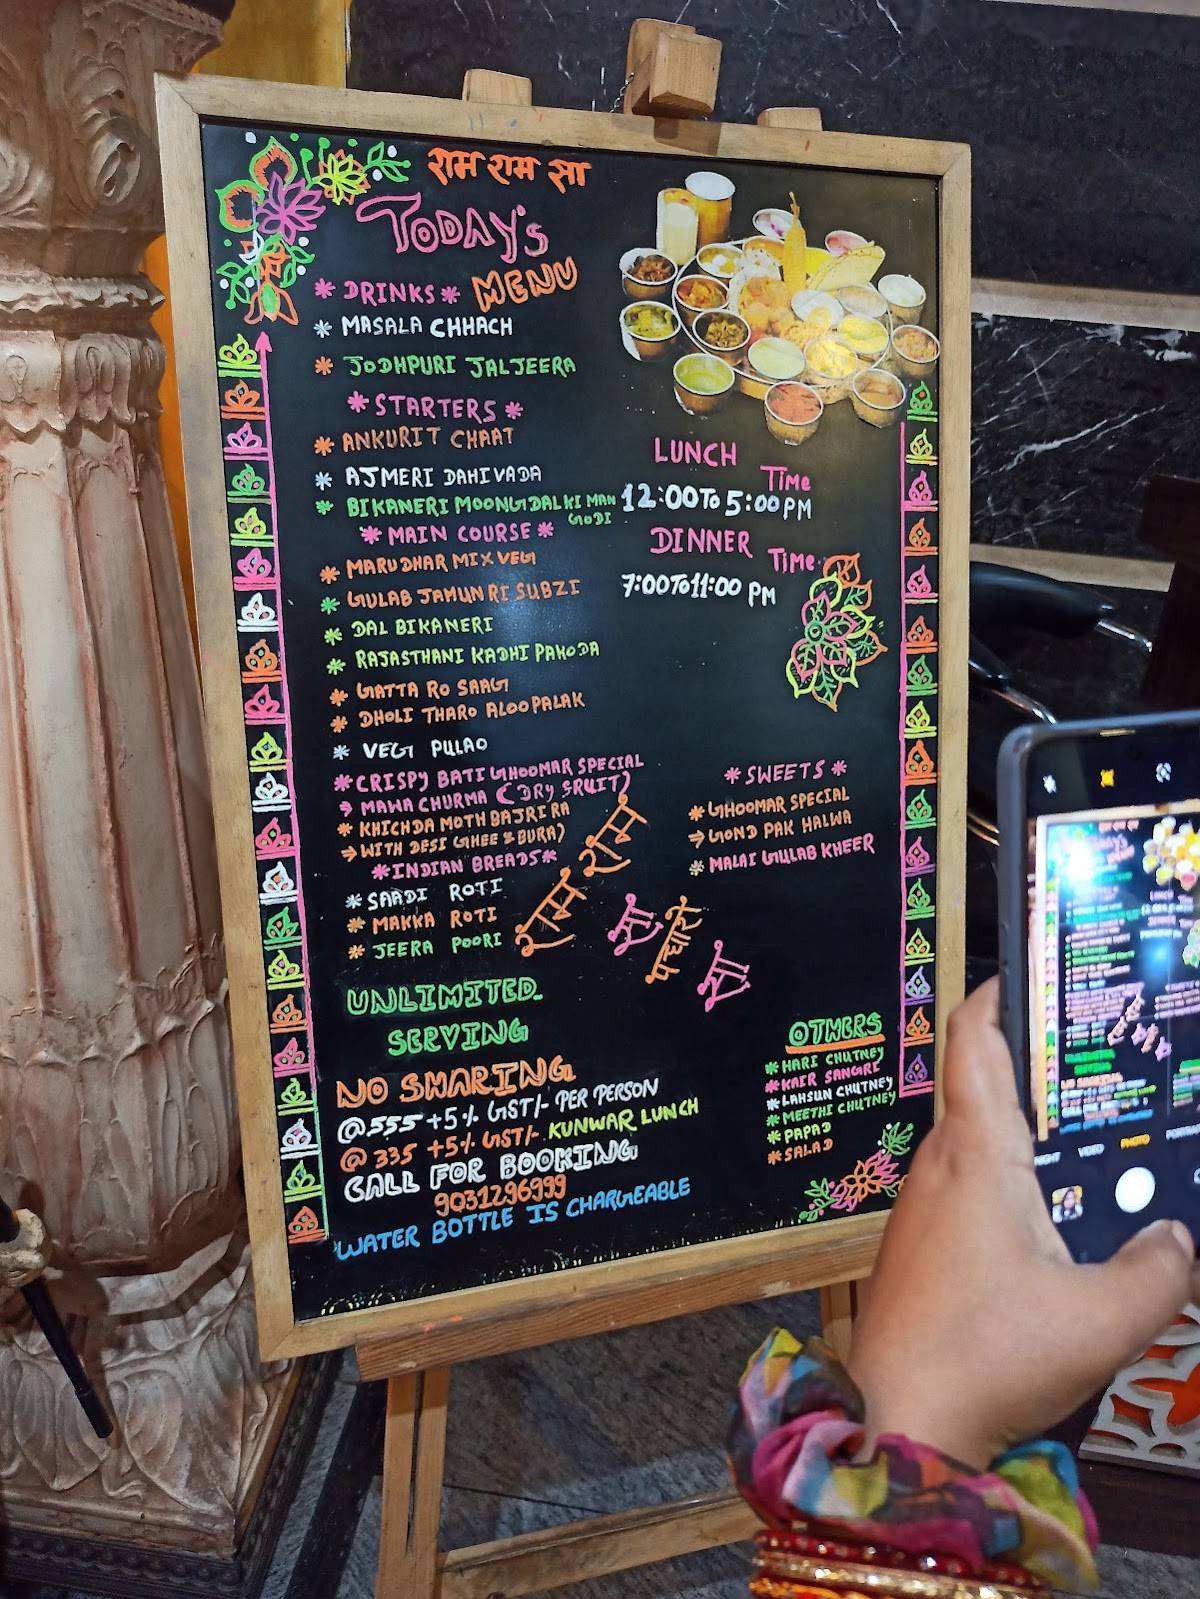 राम राम सा
TODAY'S
MENU
* DRINKS *
* MASALA CHHACH
* JODHPURI JALJEERA
* STARTERS *
* ANKURIT CHAAT
* AJMERI DAHIVADA
* BIKANERI MOONG DAL KI MAN
GODI
* MAIN COURSE *
* MARUDHAR MIX VEG
* GULAB JAMUN RI SUBZI
* DAL BIKANERI
* RAJASTHANI KADHI PAKODA
* GATTA RO SAAG
* DHOLI THARO ALOO PALAK
* VEG PULAO
* CRISPY BATI GHOOMAR SPECIAL
→ MAWA CHURMA (DRY FRUIT)
* KHICHDA MOTH BAJRI RA
→ WITH DESI GHEE & BURA)
* INDIAN BREADS *
* SAADI ROTI
* MAKKA ROTI
* JEERA POORI
LUNCH
Time
12:00 TO 5:00 PM
DINNER
Time
7:00 TO 11:00 PM
* SWEETS *
* GHOOMAR SPECIAL
→ GOND PAK HALWA
* MALAI GULAB KHEER
राम राम
सा
पधारो
सा
UNLIMITED
SERVING
NO SHARING
@ 555 +5% GST/- PER PERSON
@ 335 +5% GST/- KUNWAR LUNCH
CALL FOR BOOKING
9031296999
WATER BOTTLE IS CHARGEABLE
OTHERS
* HARI CHUTNEY
* KAIR SANGRI
* LAHSUN CHUTNEY
* MEETHI CHUTNEY
* PAPAD
* SALAD
NIGHT VIDEO PHOTO